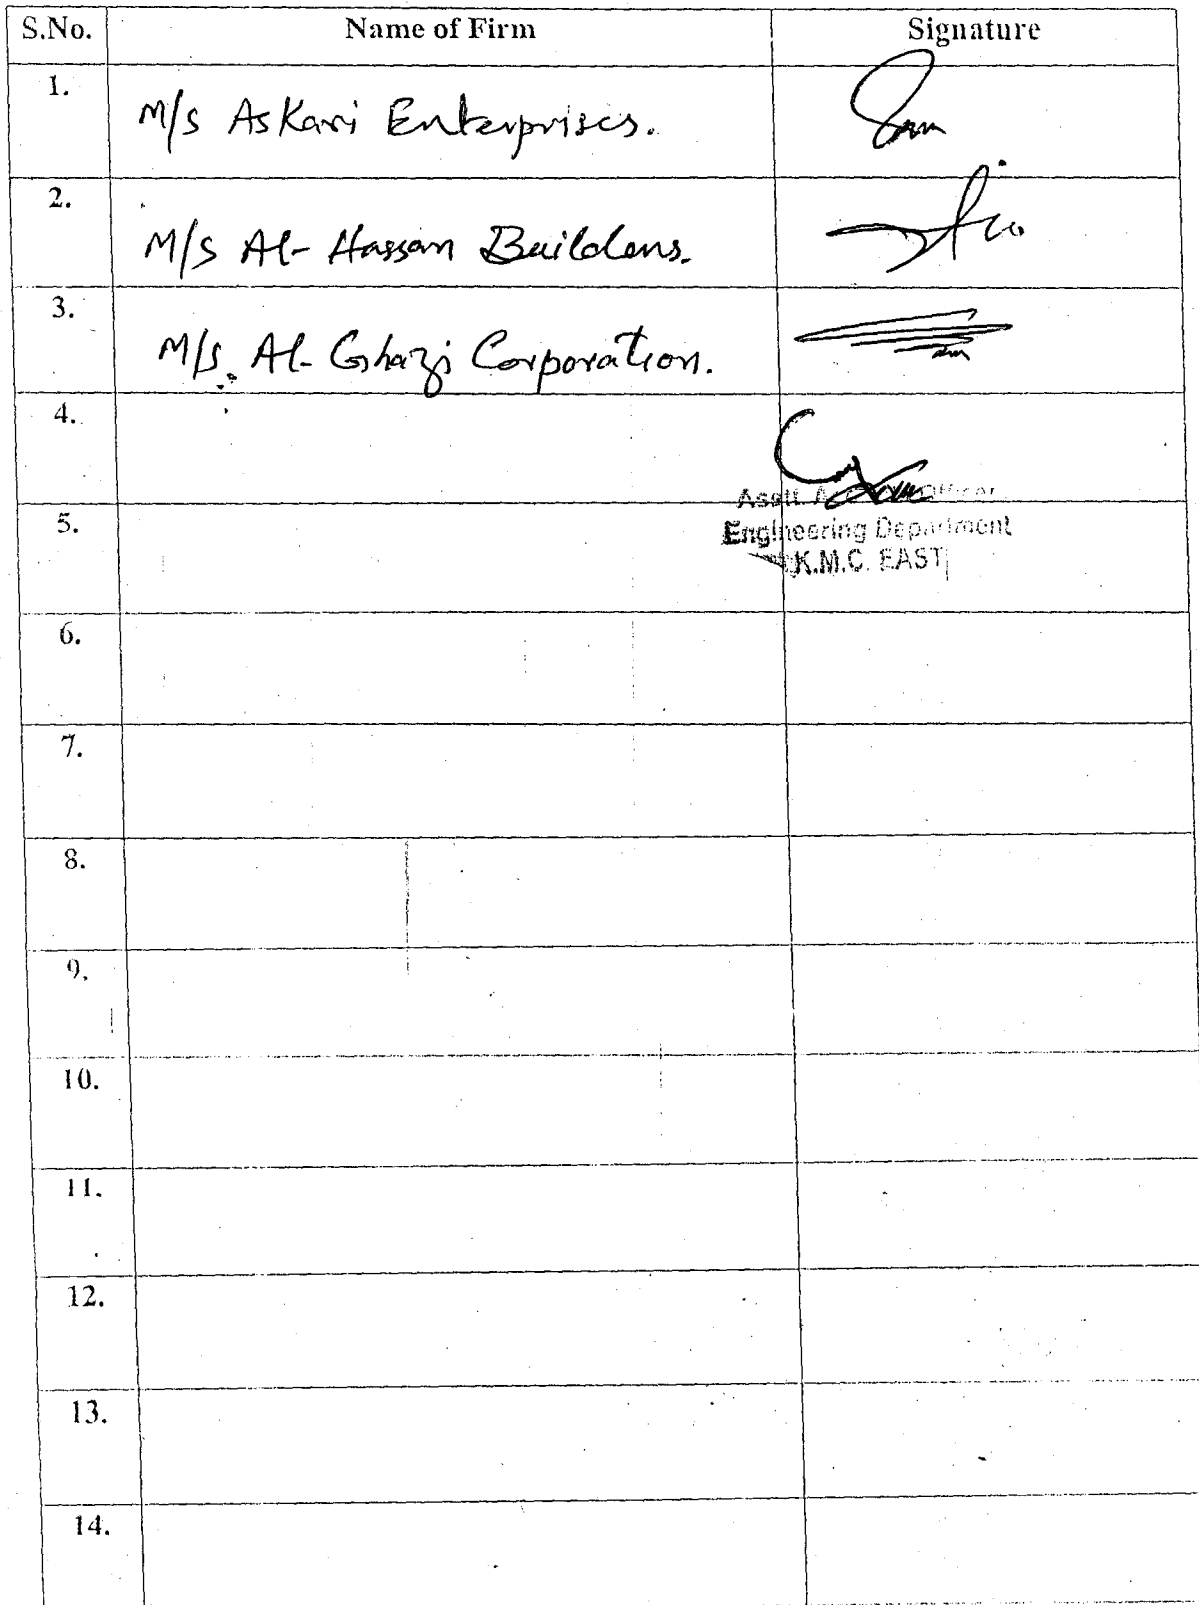 S.No. Name of Firm Signature
1. M/s Askari Enterprises.
2. M/s Al-Hassan Builders.
3. M/s. Al-Ghazi Corporation.
4.
Asstt. Officer
5.
Engineering Department
K.M.C. EAST
6.
7.
8.
9.
10.
11.
12.
13.
14.